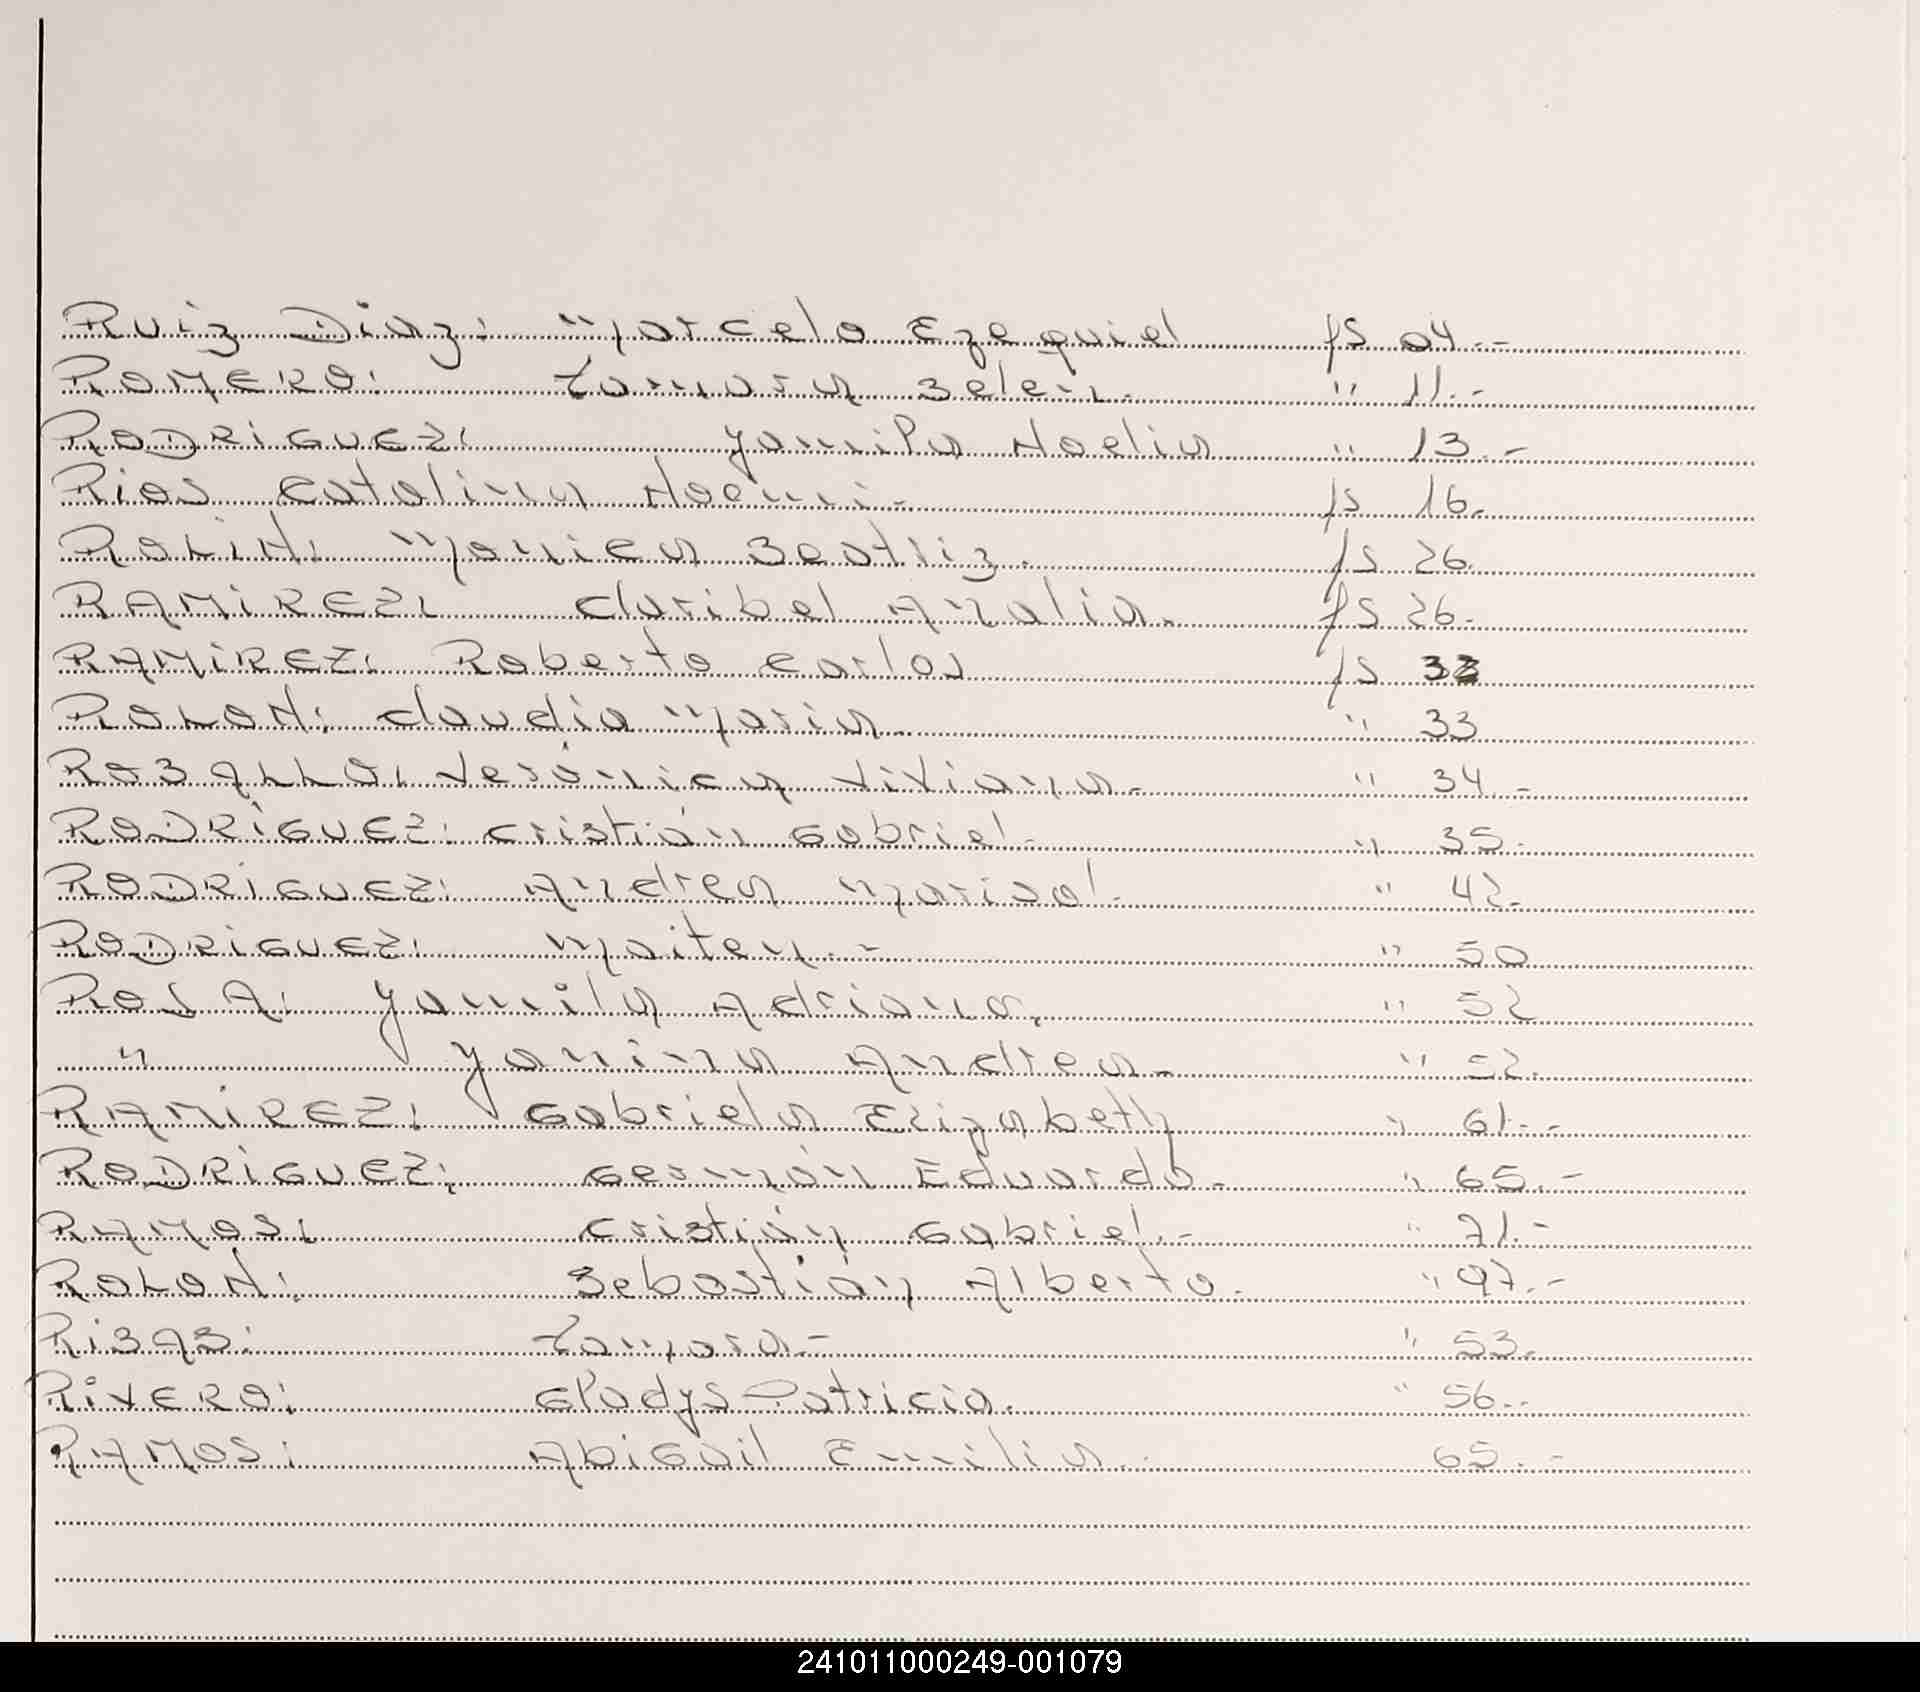 Ruiz Diaz: Marcelo Ezequiel fs 04.-
ROMERO: Tamara Belen. " 11.-
RODRiGUEZ: Yamila Noelia " 13.-
Rios Catalina Noemi.- fs 16.
ROLiN: Monica Beatriz. fs 26.
RAMiREZ: Claribel Analia. fs 26.
RAMiREZ: Roberto Carlos fs 32
ROLON: Claudia Maria. " 33
ROBALLO: Verónica Viviana.- " 34.-
RODRiGUEZ: Cristián Gabriel.- " 35.-
RODRiGUEZ: Andrea Marisol.- " 42.-
RODRiGUEZ: Maiten.- " 50
ROSA: Yamila Adriana. " 52
" Yanina Andrea.- " 52.
RAMiREZ: Gabriela Elizabeth " 61.-
RODRiGUEZ: Germán Eduardo.- " 65.-
RAMOS: Cristián Gabriel.- " 71.-
ROLON: Sebastián Alberto. " 97.-
RiBAS: Tamara.- " 53.
RiVERO: Gladys Patricia. " 56.-
RAMOS: Abigail Emilia. 65.-
241011000249-001079